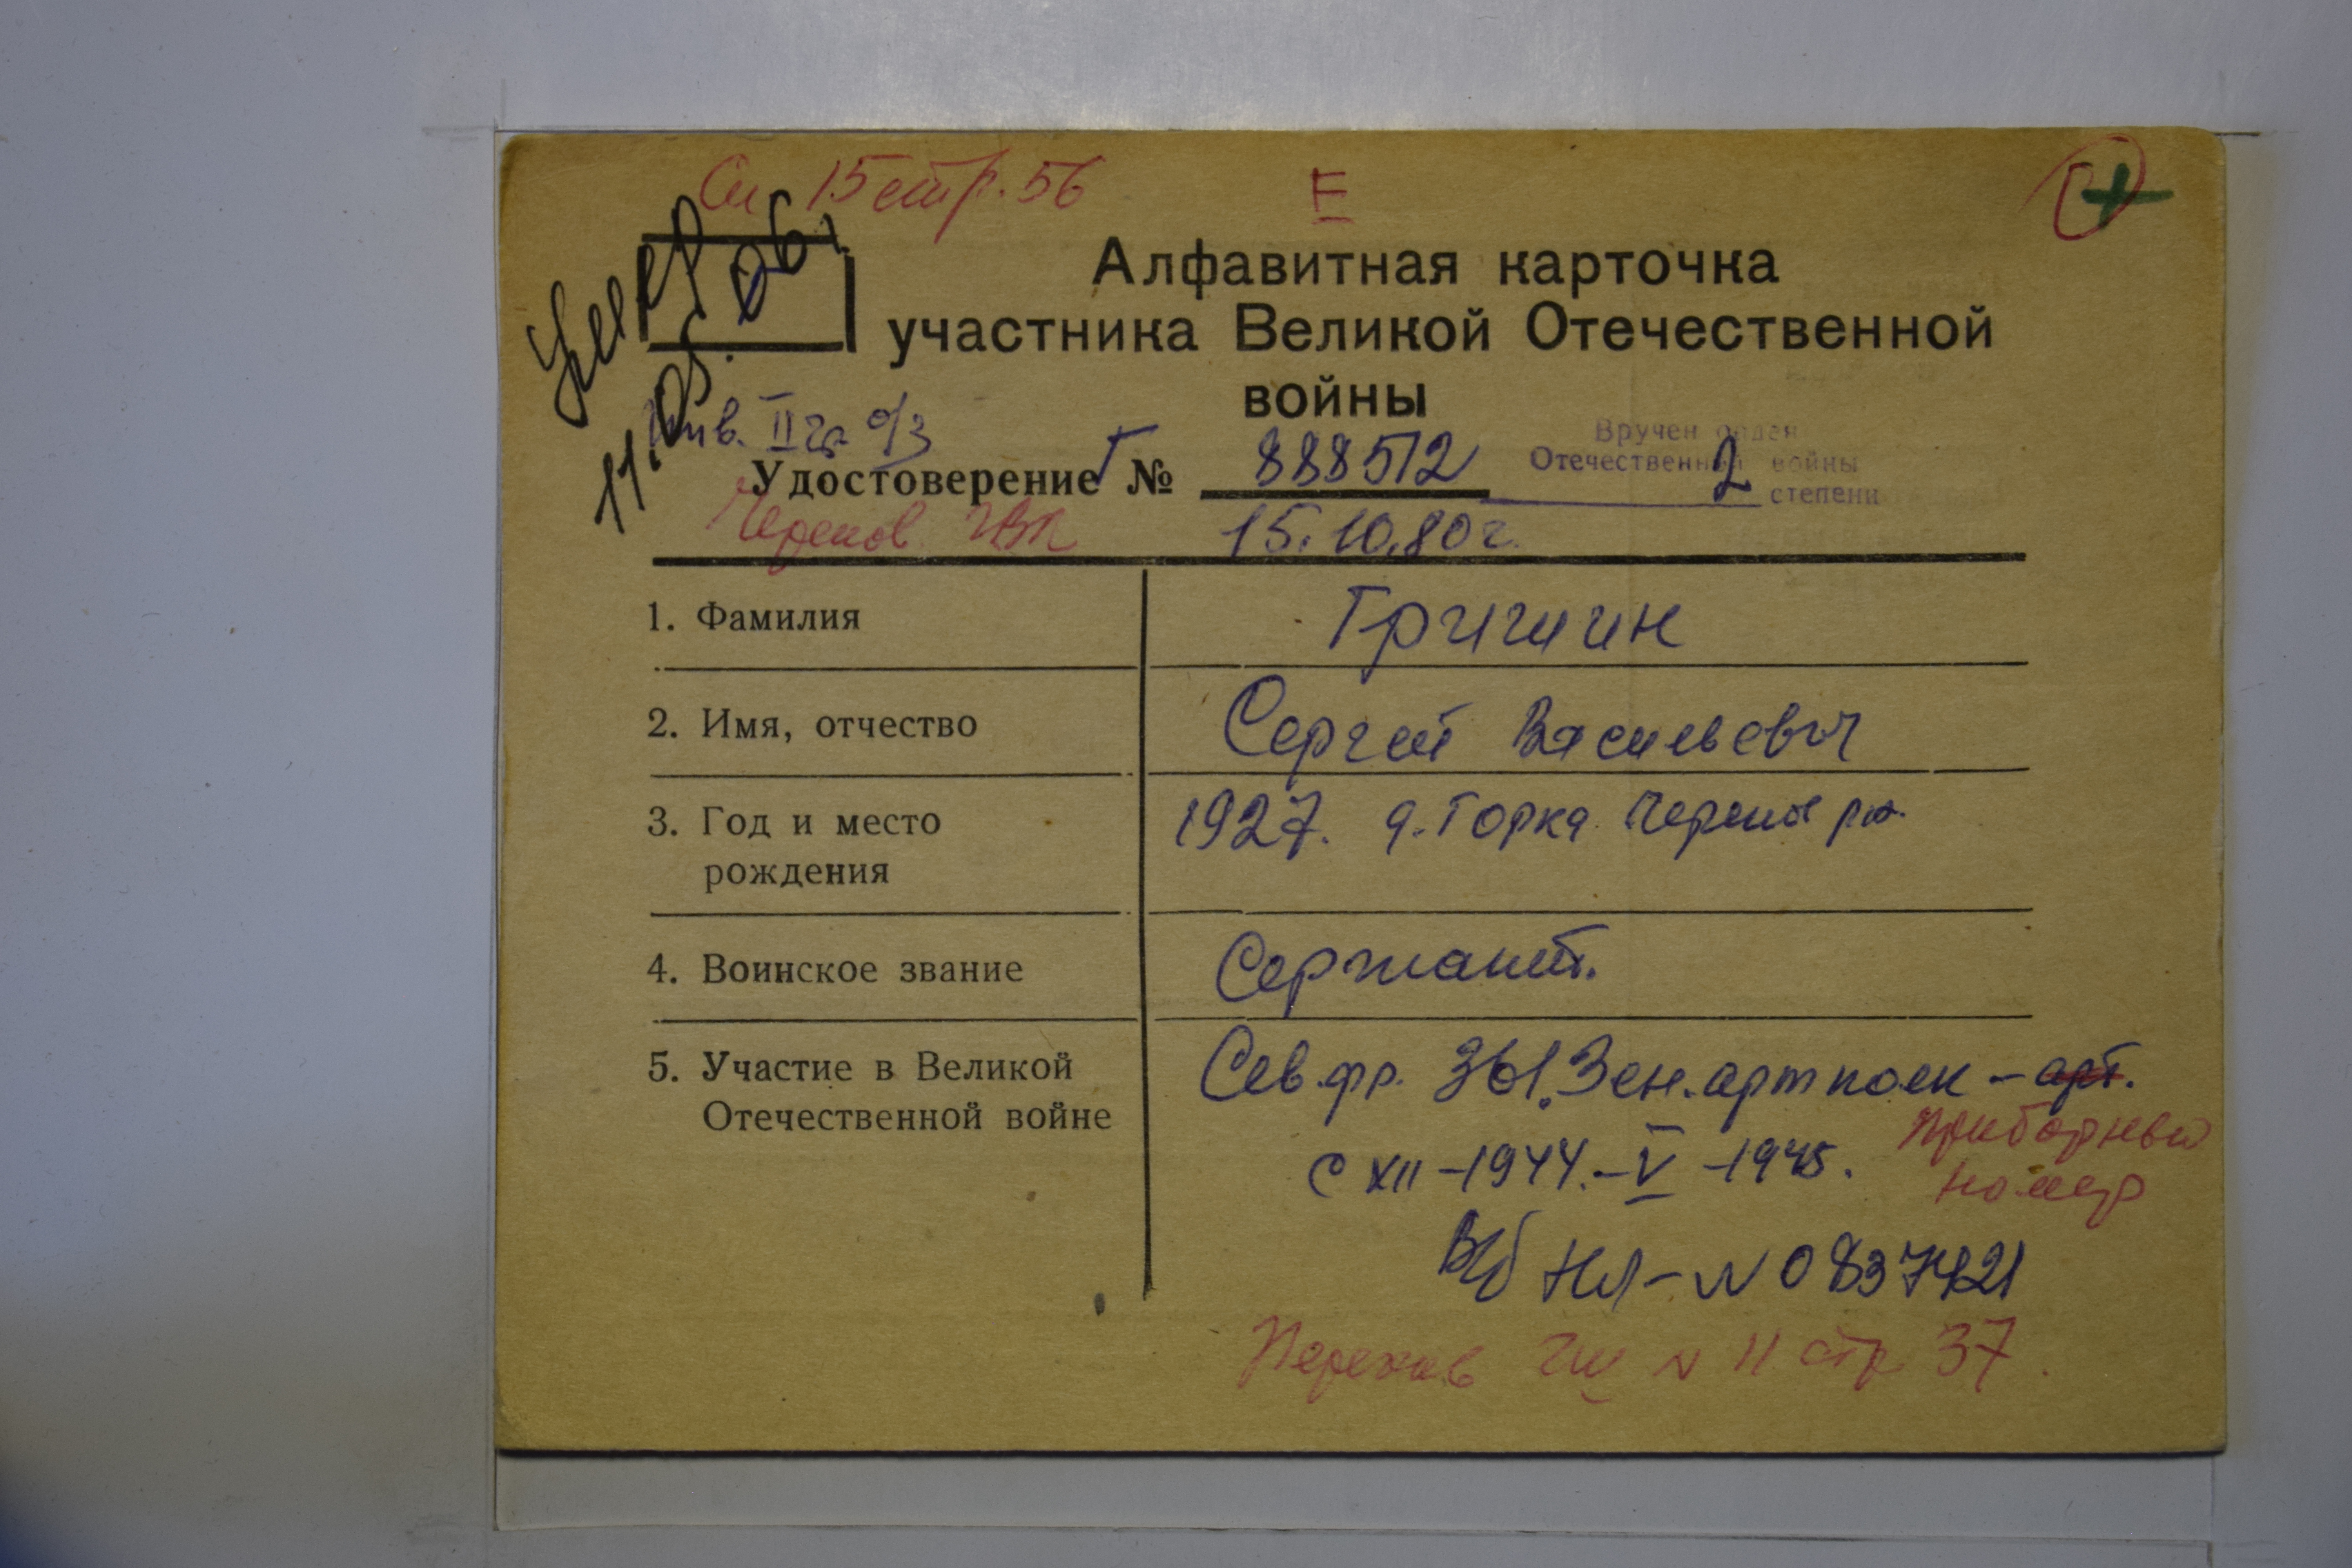 Сп 15 стр. 56
Е
Умер
11.05.06г
Алфавитная карточка
участника Великой Отечественной
войны
Инв. II гр о/з
Удостоверение Г № 888512
Вручен орден
Отечественной войны
2 степени
Черепов. ГВК 15.10.80г.
1. Фамилия Гришин
2. Имя, отчество Сергей Васильевич
3. Год и место 1927. д. Горка Череп рн.
рождения
4. Воинское звание Сержант.
5. Участие в Великой Сев.фр. 361.Зен.артполк – арт.
Отечественной войне приборный
с XII – 1944. – V – 1945. номер
НЛ – N 0837421
Перехив N 11 стр 37.